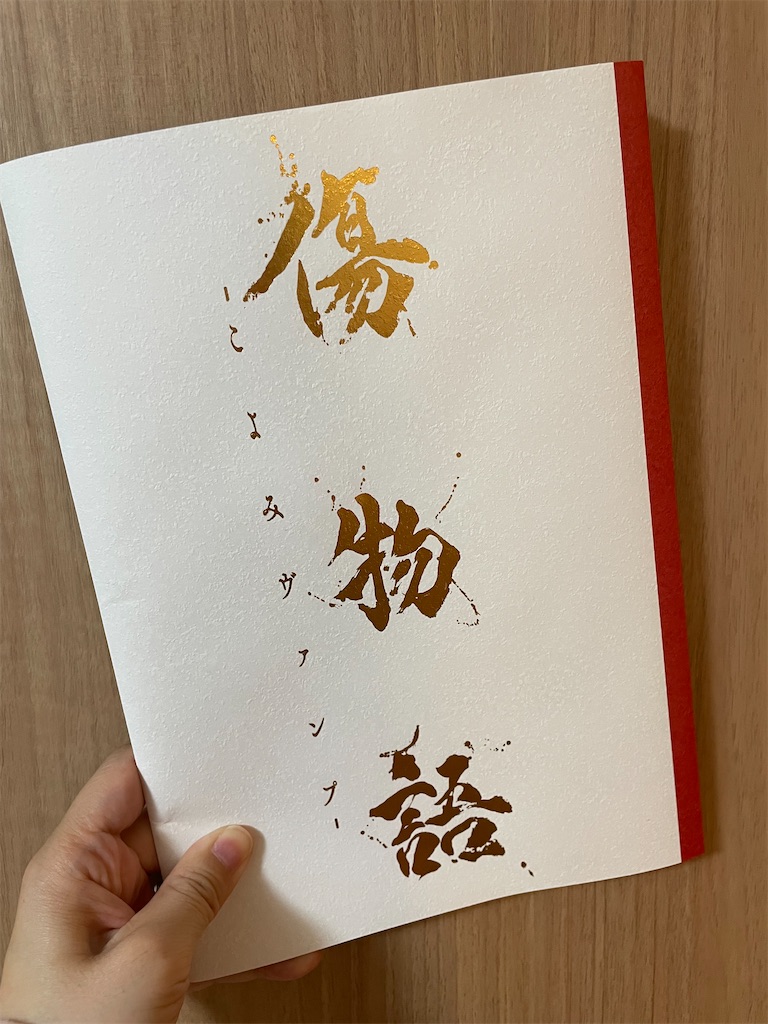 傷物語
-こよみヴァンプ-